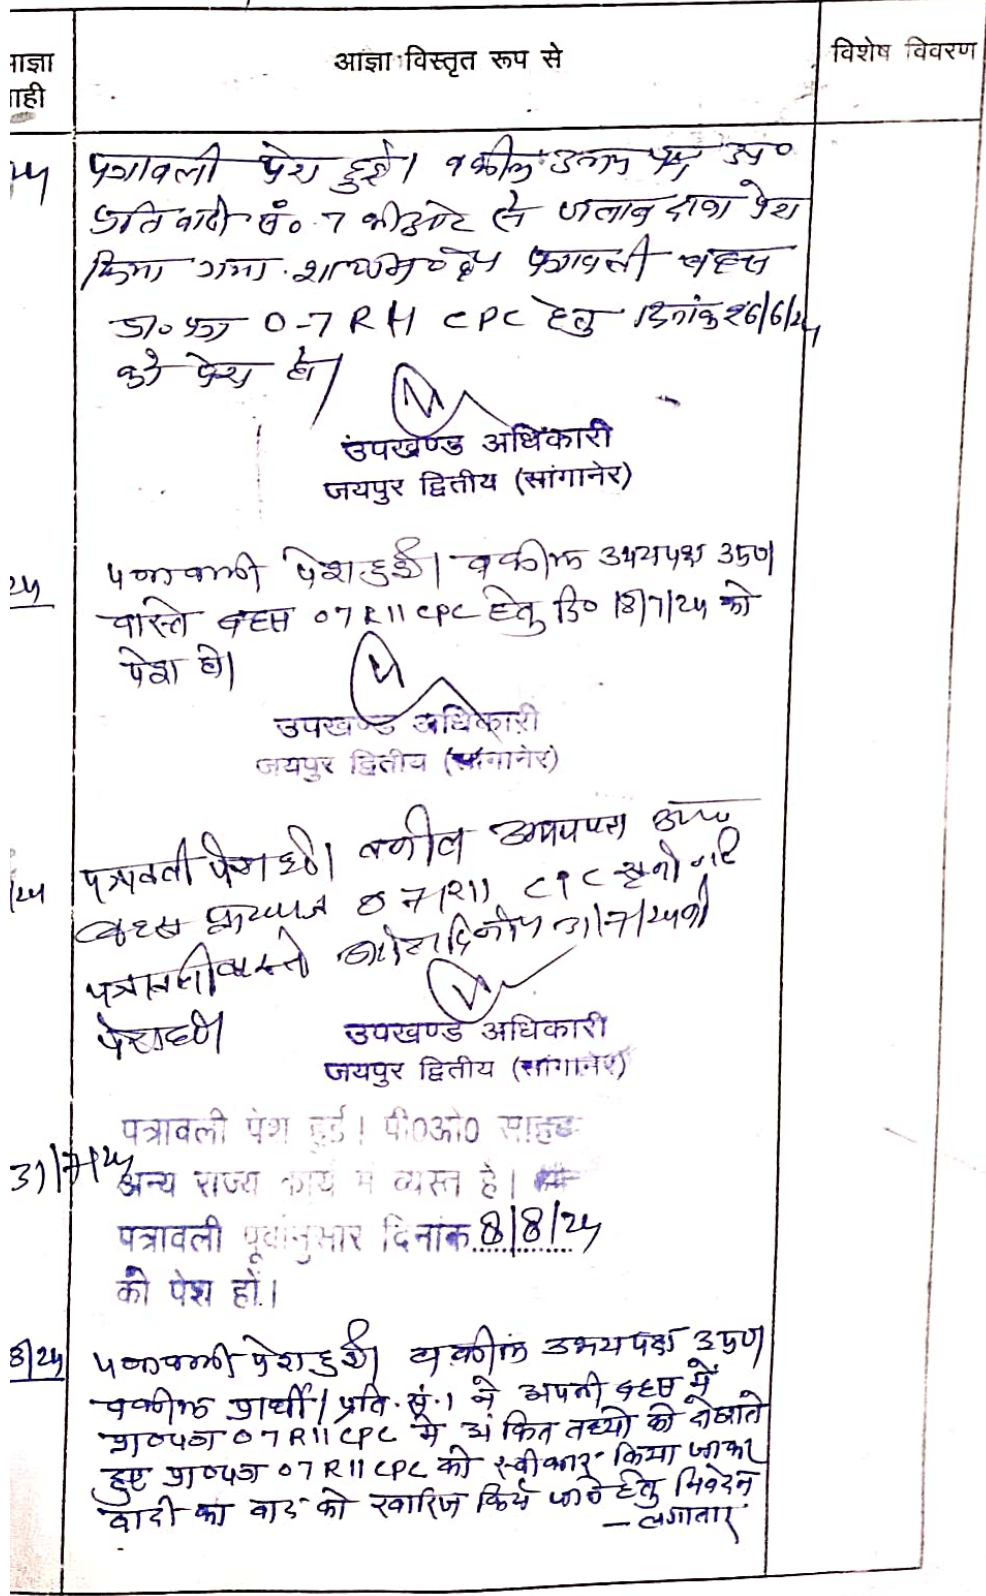 ाज्ञा
ाही
आज्ञा विस्तृत रूप से
विशेष विवरण
24
पत्रावली पेश हुई। वकील उभय पक्ष उप०
प्रतिवादी सं० 7 की ओर से जवाब दावा पेश
किया गया. पत्रावली बहस
प्रा० पत्र 0-7 R 11 CPC हेतु दिनांक 26/6/24
को पेश हो।
उपखण्ड अधिकारी
जयपुर द्वितीय (सांगानेर)
24
पत्रावली पेश हुई। वकील उभयपक्ष उप०
वास्ते बहस 07 R11 CPC हेतु दि० 18/7/24 को
पेश हो।
उपखण्ड अधिकारी
जयपुर द्वितीय (सांगानेर)
/24
पत्रावली पेश हुई। वकील उभयपक्ष उप०
बहस 0 7 R11 CPC सुनी गई
पत्रावली वास्ते आदेश दिनांक 31/7/24 को
पेश हो।
उपखण्ड अधिकारी
जयपुर द्वितीय (सांगानेर)
पत्रावली पेश हुई। पी०ओ० साहब
31/7/24
अन्य राज्य कार्य में व्यस्त है।
पत्रावली पूर्वानुसार दिनांक 8/8/24
को पेश हों।
8/24
पत्रावली पेश हुई। वकील उभयपक्ष उप०
वकील प्रार्थी/प्रति. सं. 1 ने अपनी बहस में
प्रा०पत्र 07 R11 CPC में अंकित तथ्यों को दोहराते
हुए प्रा०पत्र 07 R11 CPC को स्वीकार किया जाकर
वादी का वाद को खारिज किये जाने हेतु निवेदन
– लगातार